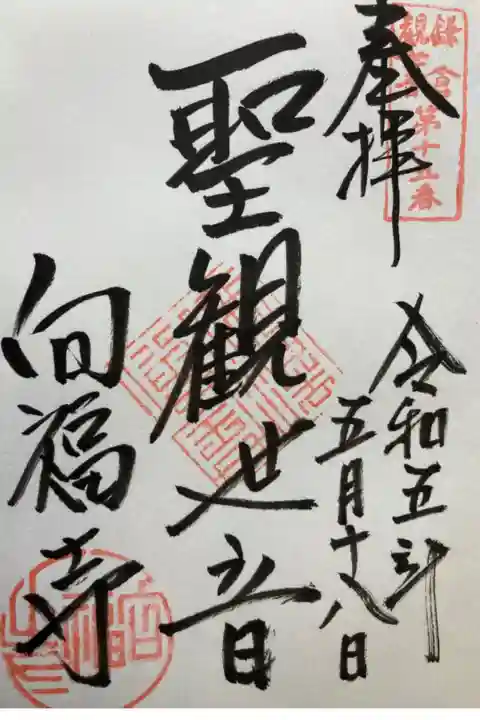 奉拝
鎌倉
観世音第十五番
令和五年
五月十八日
聖観世音
向福寺